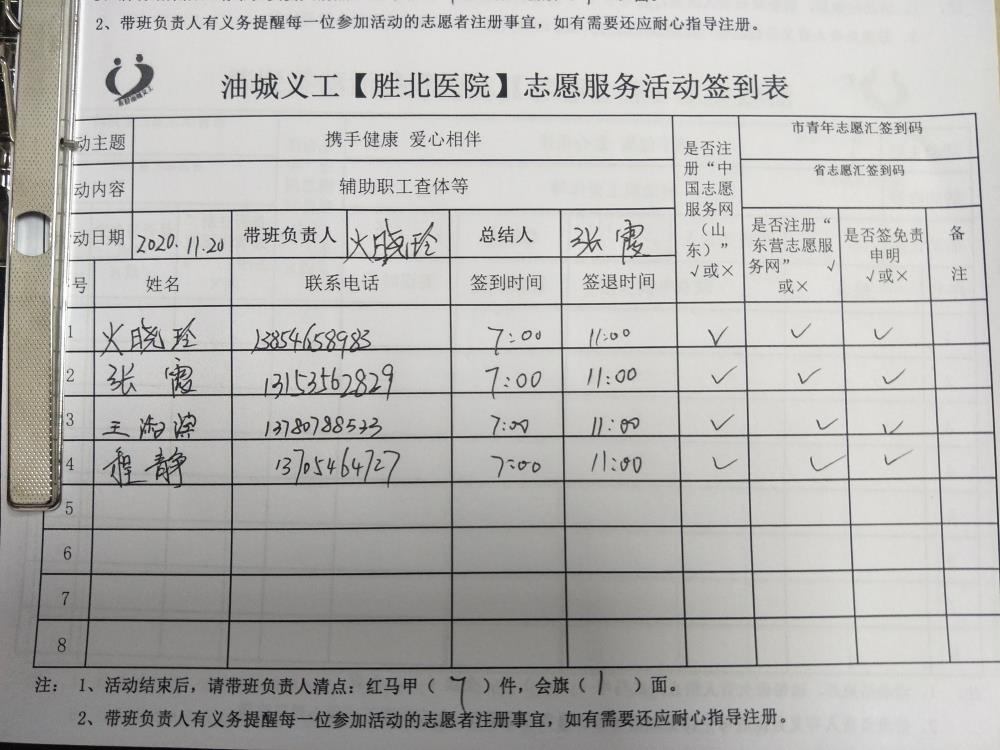 2、带班负责人有义务提醒每一位参加活动的志愿者注册事宜，如有需要还应耐心指导注册。
油城义工【胜北医院】志愿服务活动签到表
动主题 携手健康 爱心相伴 是否注册“中国志愿服务网（山东）” √或× 市青年志愿汇签到码
动内容 辅助职工查体等 省志愿汇签到码
动日期 2020.11.20 带班负责人 火晓玲 总结人 张霞 是否注册“东营志愿服务网” √或× 是否签免责申明 √或× 备注
号 姓名 联系电话 签到时间 签退时间
1 火晓玲 13854658983 7:00 11:00 √ √ √
2 张霞 13153562829 7:00 11:00 √ √ √
3 王 13780788533 7:00 11:00 √ √ √
4 程静 13705464727 7:00 11:00 √ √ √
5
6
7
8
注：1、活动结束后，请带班负责人清点：红马甲（7）件，会旗（1）面。
2、带班负责人有义务提醒每一位参加活动的志愿者注册事宜，如有需要还应耐心指导注册。